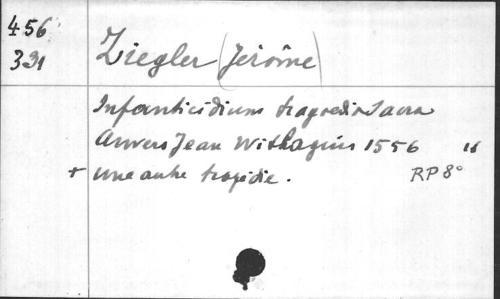 456
331
Ziegler (Jérôme)
Infanticidium tragoedia sacra
Anvers Jean Withagius 1556 16
+ une autre tragédie. RP 8°